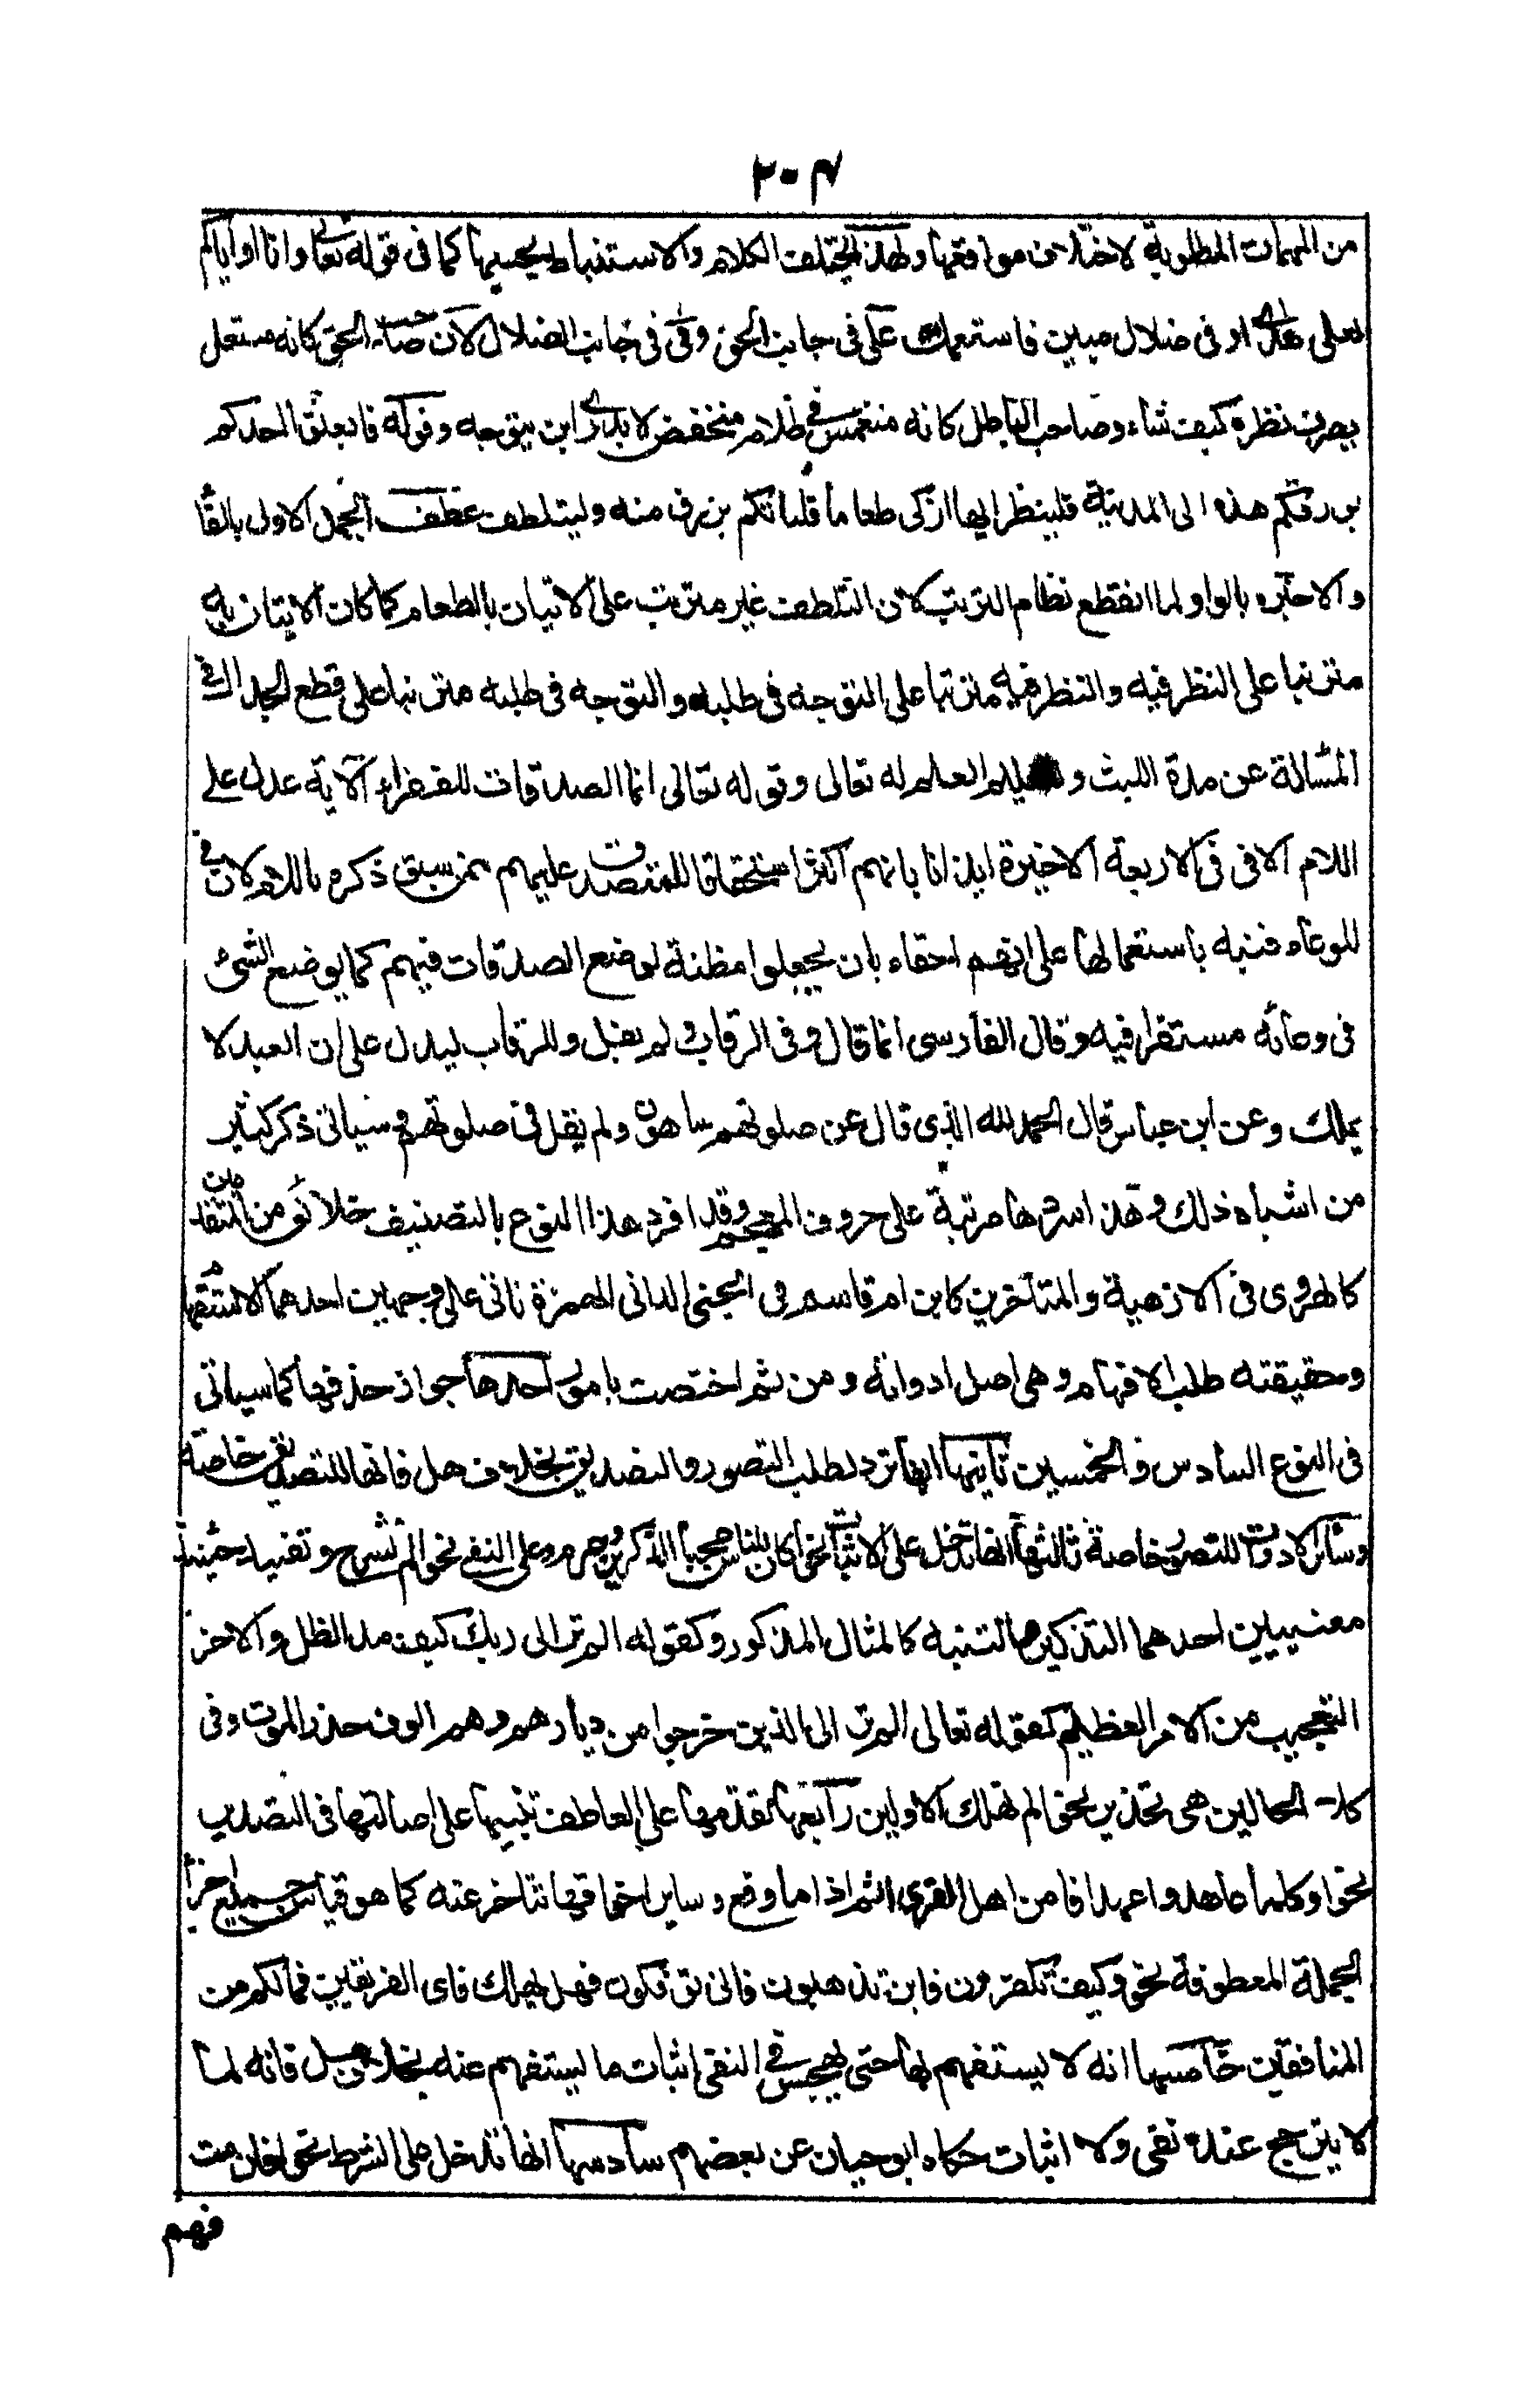 ٢٠٤
من المهمات المطلوبة لاختلاف مواقعها ولهذا يختلف الكلام والاستنباط بحسبها كما فى قوله تعالى وانا او اياكم
لعلى هدى او فى ضلال مبين فاستعملت على فى جانب الحق وفى فى جانب الضلال لان صاحب الحق كانه مستعل
يصرف نظره كيف شاء وصاحب الباطل كانه منغمس فى ظلام منخفض لا يدرى اين يتوجه وقوله فابعثوا احدكم
بورقكم هذه الى المدينة فلينظر ايها ازكى طعاما فلياتكم برزق منه وليتلطف عطف الجمل الاول بالفا
والاخيره بالواو لما انقطع نظام الترتب لان التلطف غير مترتب على الاتيان بالطعام كما كان الاتيان به
مترتبا على النظر فيه والنظر فيه مترتبا على التوجه فى طلبه والتوجه فى طلبه مترتبا على قطع الجدال فى
المسالة عن مدة اللبث و تسليم العلم له تعالى وقوله تعالى انما الصدقات للفقراء الآية عدل على
اللام الا فى فى الاربعة الاخيرة ايذانا بانهم اكثر استحقاقا للمتصدق عليهم ممن سبق ذكره باللام لان فى
للوعاء فنبه باستعمالها على انهم احقاء بان يجعلوا مظنة لوضع الصدقات فيهم كما يوضع الشئ
فى وعائه مستقرا فيه وقال الفارسى انما قال وفى الرقاب ولم يقل وللرقاب ليدل على ان العبد لا
يملك وعن ابن عباس قال الحمد لله الذى قال عن صلوتهم ساهون ولم يقل فى صلوتهم وسياتى ذكر كثير
من اشباه ذلك وهذا سردها مرتبة على حروف المعجم وقد افرد هذا النوع بالتصنيف خلائق من المتقدمين
كالهروى فى الازهية والمتاخرين كابن ام قاسم فى الجنى الدانى الهمزة تاتى على وجهين احدهما الاستفهام
وحقيقته طلب الافهام وهى اصل ادواته ومن ثم اختصت بامور احدها جواز حذفها كما سياتى
فى النوع السادس والخمسين ثانيها انها ترد لطلب التصور والتصديق بخلاف هل فانها للتصديق خاصة
وسائر الادوات للتصور خاصة ثالثها انها تدخل على الاثبات نحو اكان للناس عجبا آلذكرين حرم وعلى النفى نحو الم نشرح وتفيد حينئذ
معنيين احدهما التذكير والتنبيه كالمثال المذكور وكقوله الم تر الى ربك كيف مد الظل والاخر
التعجيب من الامر العظيم كقوله تعالى الم تر الى الذين خرجوا من ديارهم وهم الوف حذر الموت وفى
كلا الحالين هى تحذير نحو الم نهلك الاولين رابعها تقدمها على العاطف تنبيها على اصالتها فى التصدير
نحو او كلما عاهدوا عهدا افامن اهل القرى اثم اذا ما وقع وساير اخواتها تتاخر عنه كما هو قياس جميع اجزاء
الجملة المعطوفة نحو وكيف تكفرون فاين تذهبون فانى توفكون فهل يهلك فاى الفريقين فما لكم من
المنافقين خامسها انه لا يستفهم بها حتى يهجس فى النفى اثبات ما يستفهم عنه بخلاف هل فانه لما
لا يترجح عنده نفى ولا اثبات حكاه ابو حيان عن بعضهم سادسها انها تدخل على الشرط نحو افان مت
فهم